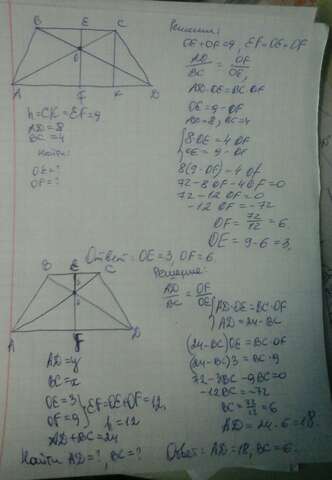 B E C
O
A F K D
h=CK=EF=9
AD=8
BC=4
Найти:
OE=?
OF=?
Решение:
OE+OF=9, EF=OE+OF
AD/BC = OF/OE,
AD·OE=BC·OF
OE=9-OF
AD=8, BC=4
{8·OE=4·OF
OE=9-OF
8(9-OF)=4·OF
72-8·OF-4·OF=0
72-12·OF=0
-12·OF=-72
OF=72/12=6
OE=9-6=3,
Ответ: OE=3, OF=6
B E C
A F D
AD=y
BC=x
OE=3
OF=9} EF=OE+OF=12,
h=12
AD+BC=24
Найти AD=?, BC=?
Решение:
AD/BC = OF/OE
{AD·OE=BC·OF
AD=24-BC
(24-BC)OE=BC·OF
(24-BC)3=BC·9
72-3BC-9BC=0
-12BC=-72
BC=72/12=6
AD=24-6=18
Ответ: AD=18, BC=6.